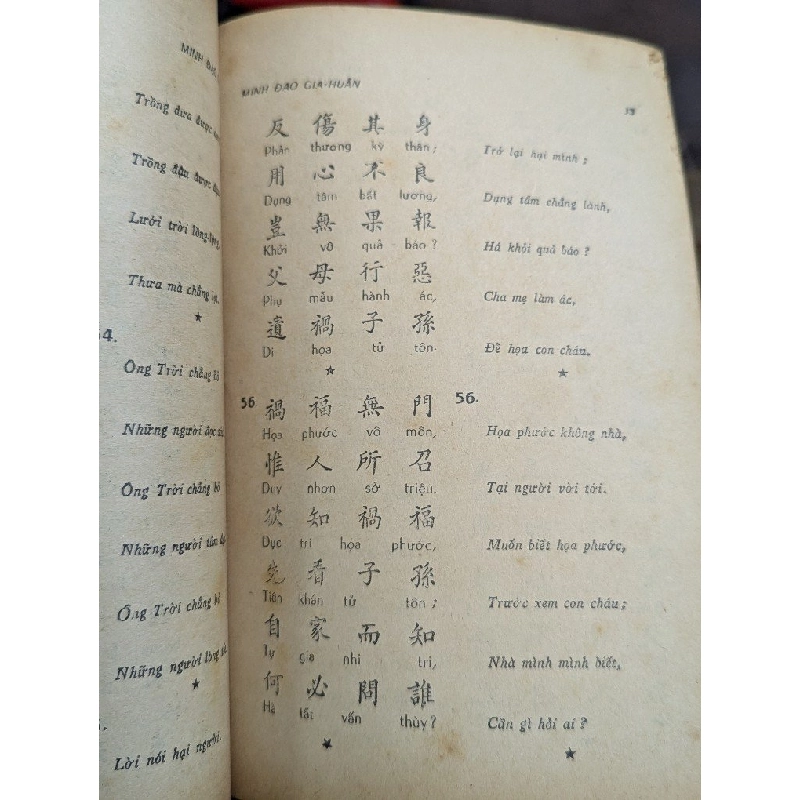 MINH ĐẠO
Trồng dưa được
Trồng đậu được
Lưới trời lồng
Thưa mà chẳng
★
Ông Trời chẳng
Những người
Ông Trời chẳng
Những người
Ông Trời chẳng
Những người
★
Lời nói hại người.
MINH ĐẠO GIA-HUẤN
反 傷 其 身
Phản thương kỳ thân; Trở lại hại mình;
用 心 不 良
Dụng tâm bất lương, Dụng tâm chẳng lành,
豈 無 果 報
Khởi vô quả báo? Há khỏi quả báo?
父 母 行 惡
Phụ mẫu hành ác, Cha mẹ làm ác,
遺 禍 子 孫
Di họa tử tôn. Để họa con cháu.
★ ★
56 禍 福 無 門 56.
Họa phước vô môn, Họa phước không nhà,
惟 人 所 召
Duy nhơn sở triệu. Tại người vời tới.
欲 知 禍 福
Dục tri họa phước, Muốn biết họa phước,
先 看 子 孫
Tiên khán tử tôn; Trước xem con cháu;
自 家 而 知
Tự gia nhi tri, Nhà mình mình biết,
何 必 問 誰
Hà tất vấn thùy? Cần gì hỏi ai?
★ ★